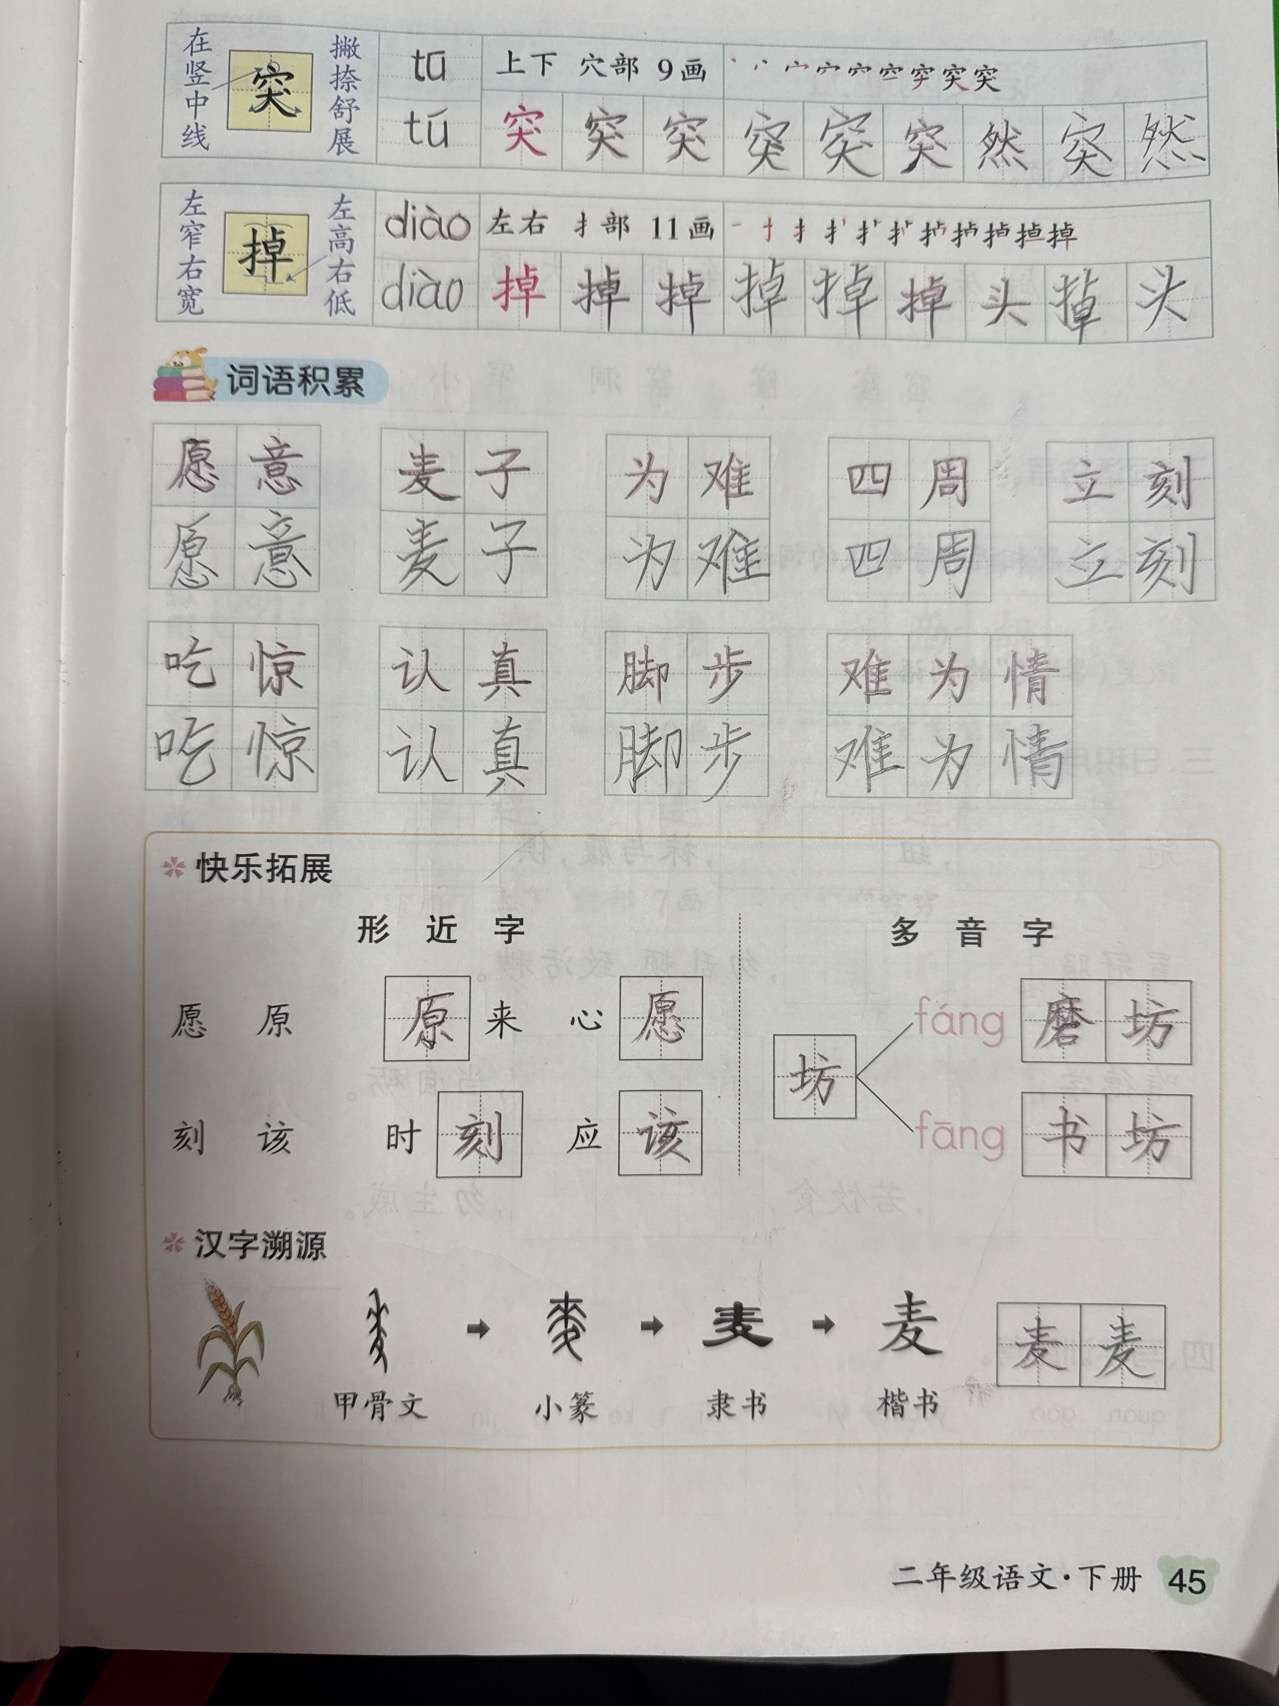 在竖中线 突 撇捺舒展 tū 上下 穴部 9画
tú 突 突 突 突 突 突 然 突 然
左窄右宽 掉 左高右低 diào 左右 扌部 11画
diào 掉 掉 掉 掉 掉 掉 头 掉 头
词语积累
愿意 麦子 为难 四周 立刻
愿意 麦子 为难 四周 立刻
吃惊 认真 脚步 难为情
吃惊 认真 脚步 难为情
快乐拓展
形近字 多音字
愿 原 原来 心愿 坊 fáng 磨坊
刻 该 时刻 应该 fāng 书坊
汉字溯源
麦 麦 麦 麦
甲骨文 小篆 隶书 楷书
二年级语文·下册 45